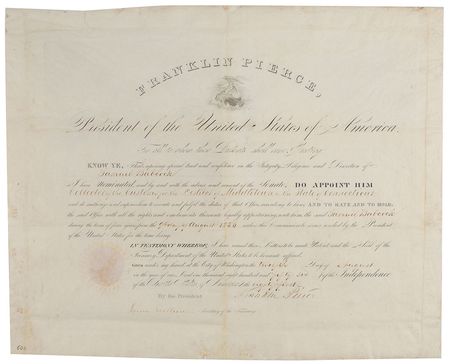 FRANKLIN PIERCE,
President of the United States of America.
To all to whom these Presents shall come, Greeting:
KNOW YE, That reposing special trust and confidence in the Integrity, Diligence and Discretion of
Samuel Babcock
I have Nominated, and by and with the advice and consent of the Senate, DO APPOINT HIM
Collector of the Customs for the District of Middletown in the State of Connecticut
and do authorize and empower him to execute and fulfil the duties of that Office according to law: AND TO HAVE AND TO HOLD,
the said Office with all the rights and emoluments thereunto legally appertaining unto him the said Samuel Babcock
during the term of four years from the of August 1856 unless this Commission be sooner revoked by the President
of the United States for the time being.
IN TESTIMONY WHEREOF, I have caused these Letters to be made Patent and the Seal of the
Treasury Department of the United States to be hereunto affixed.
GIVEN under my hand at the City of Washington, the Day August
in the year of our Lord one thousand eight hundred and fifty six of the Independence
of the United States of America the eighty first
By the President
Franklin Pierce
Secretary of the Treasury